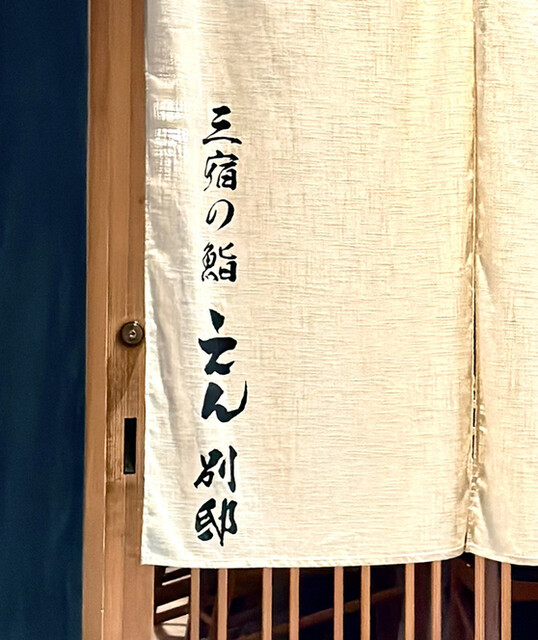 三宿の鮨 えん 別邸